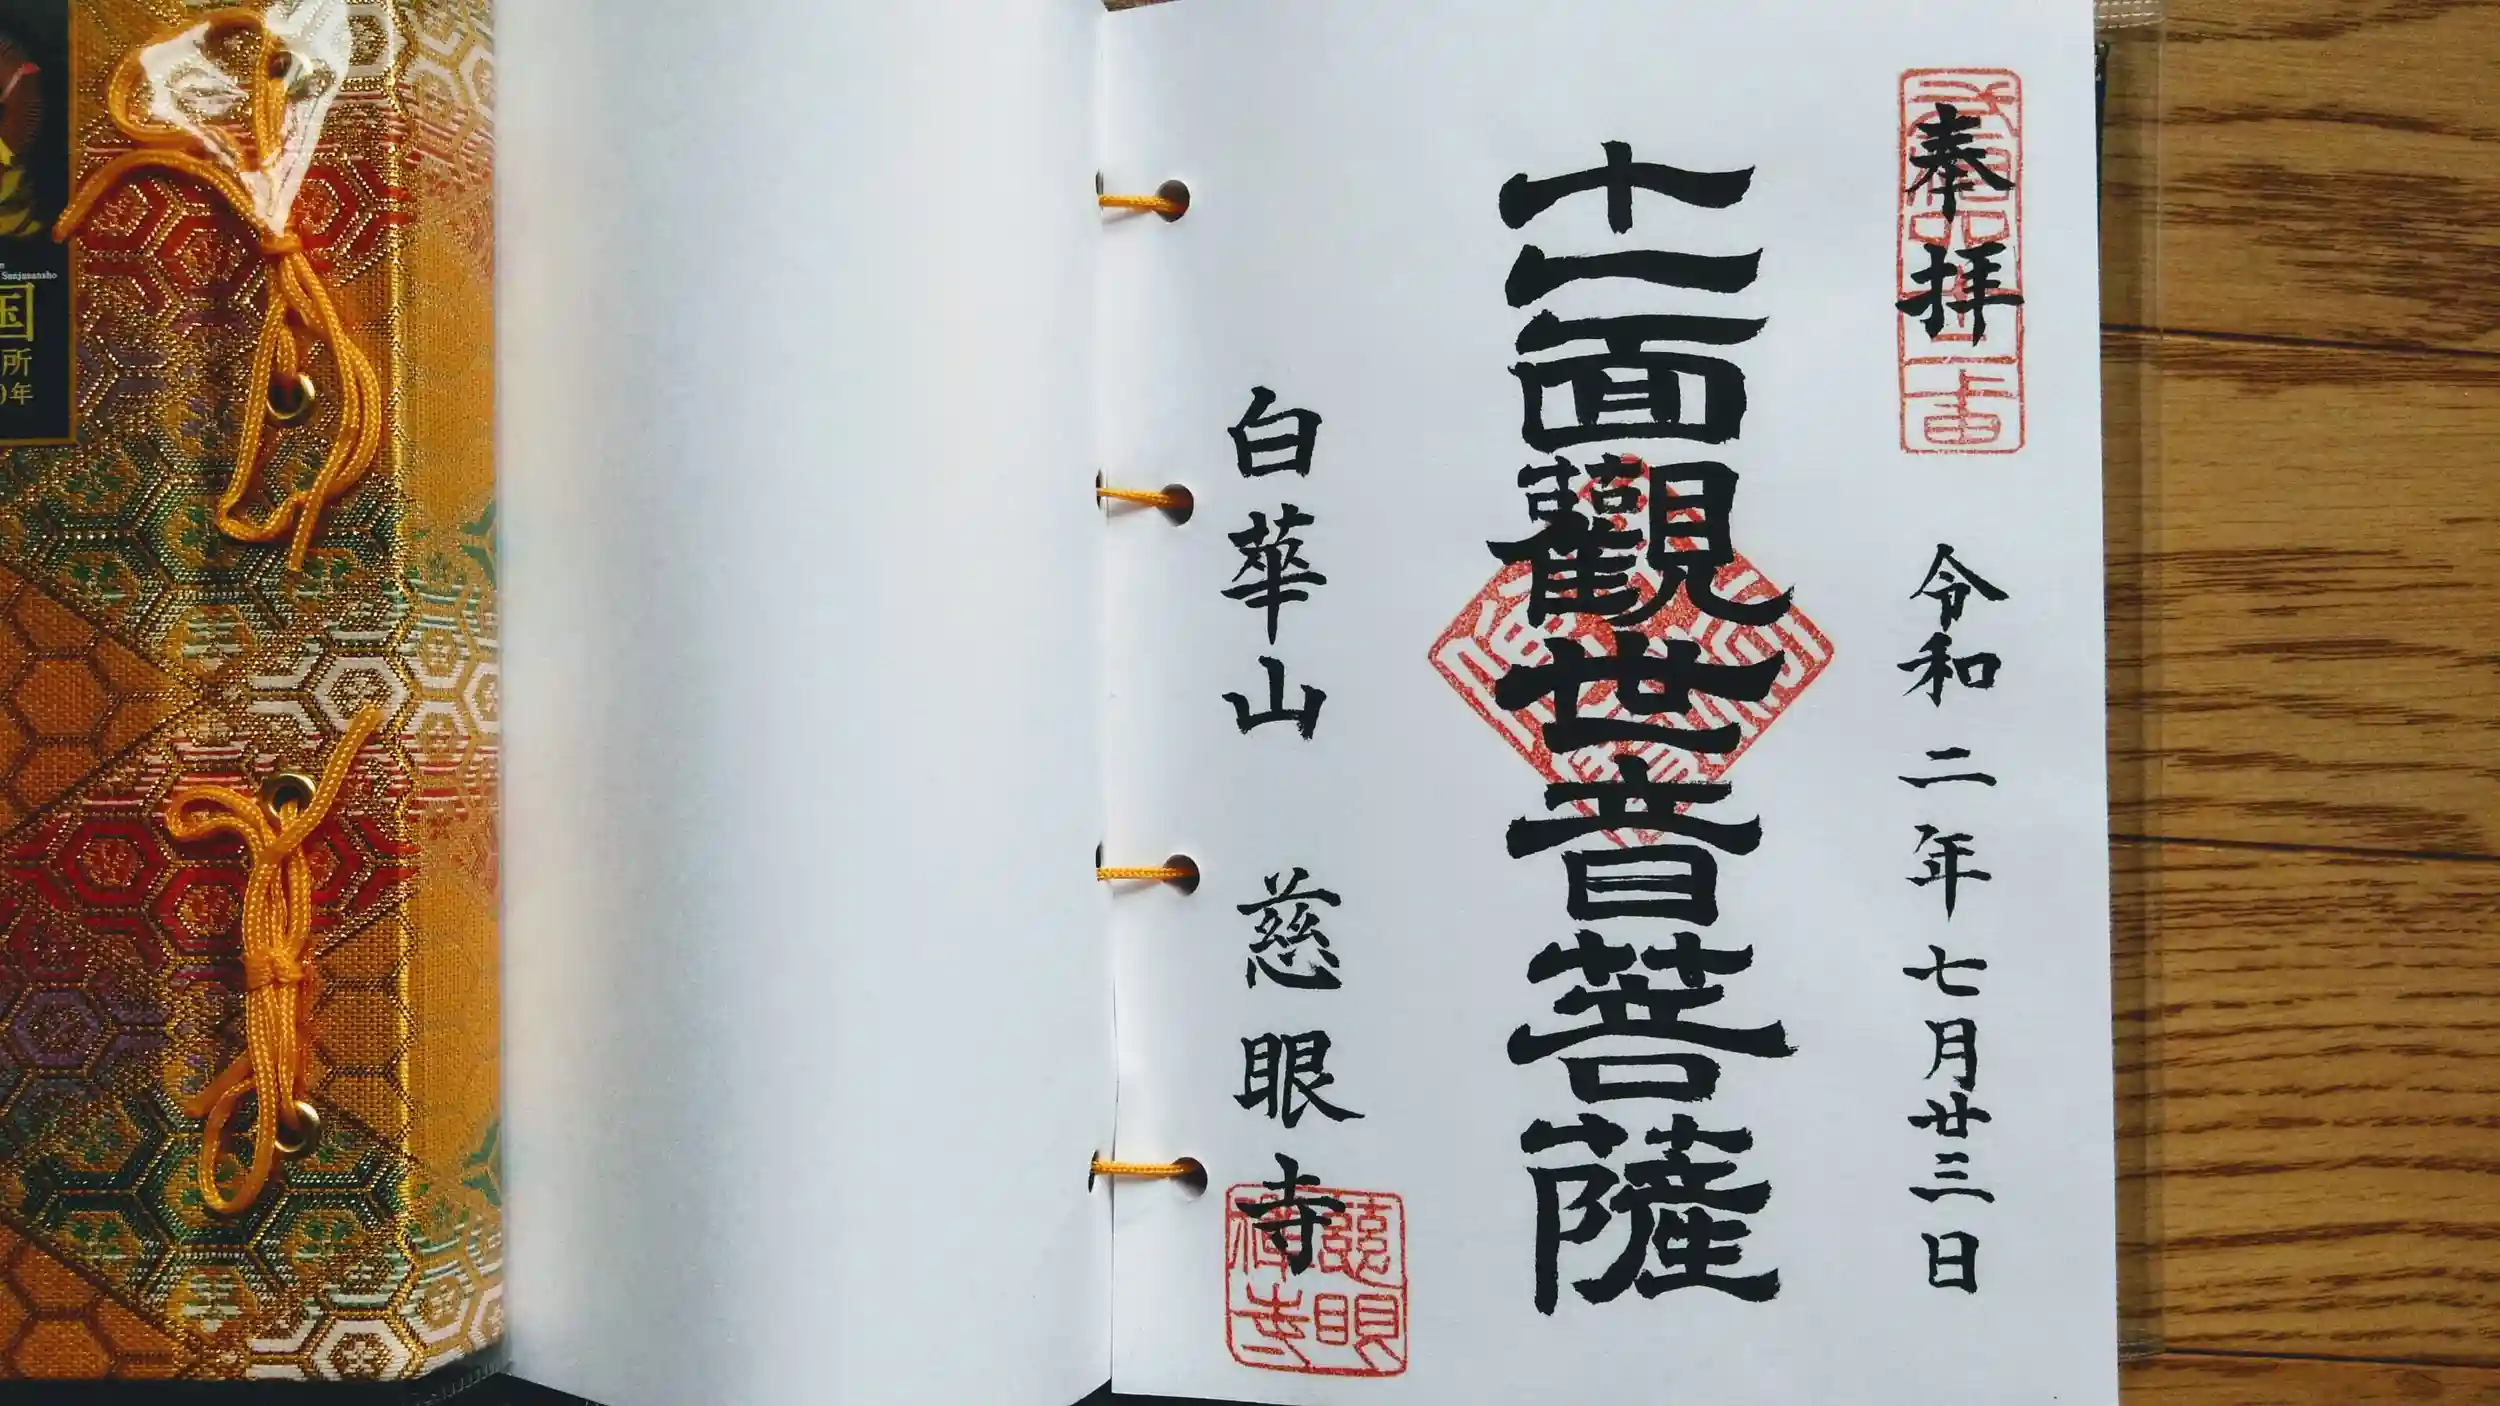 奉拝
令和二年七月廿三日
十一面觀世音菩薩
白華山 慈眼寺
慈眼
禅寺
Sunjusansho
国
所
年